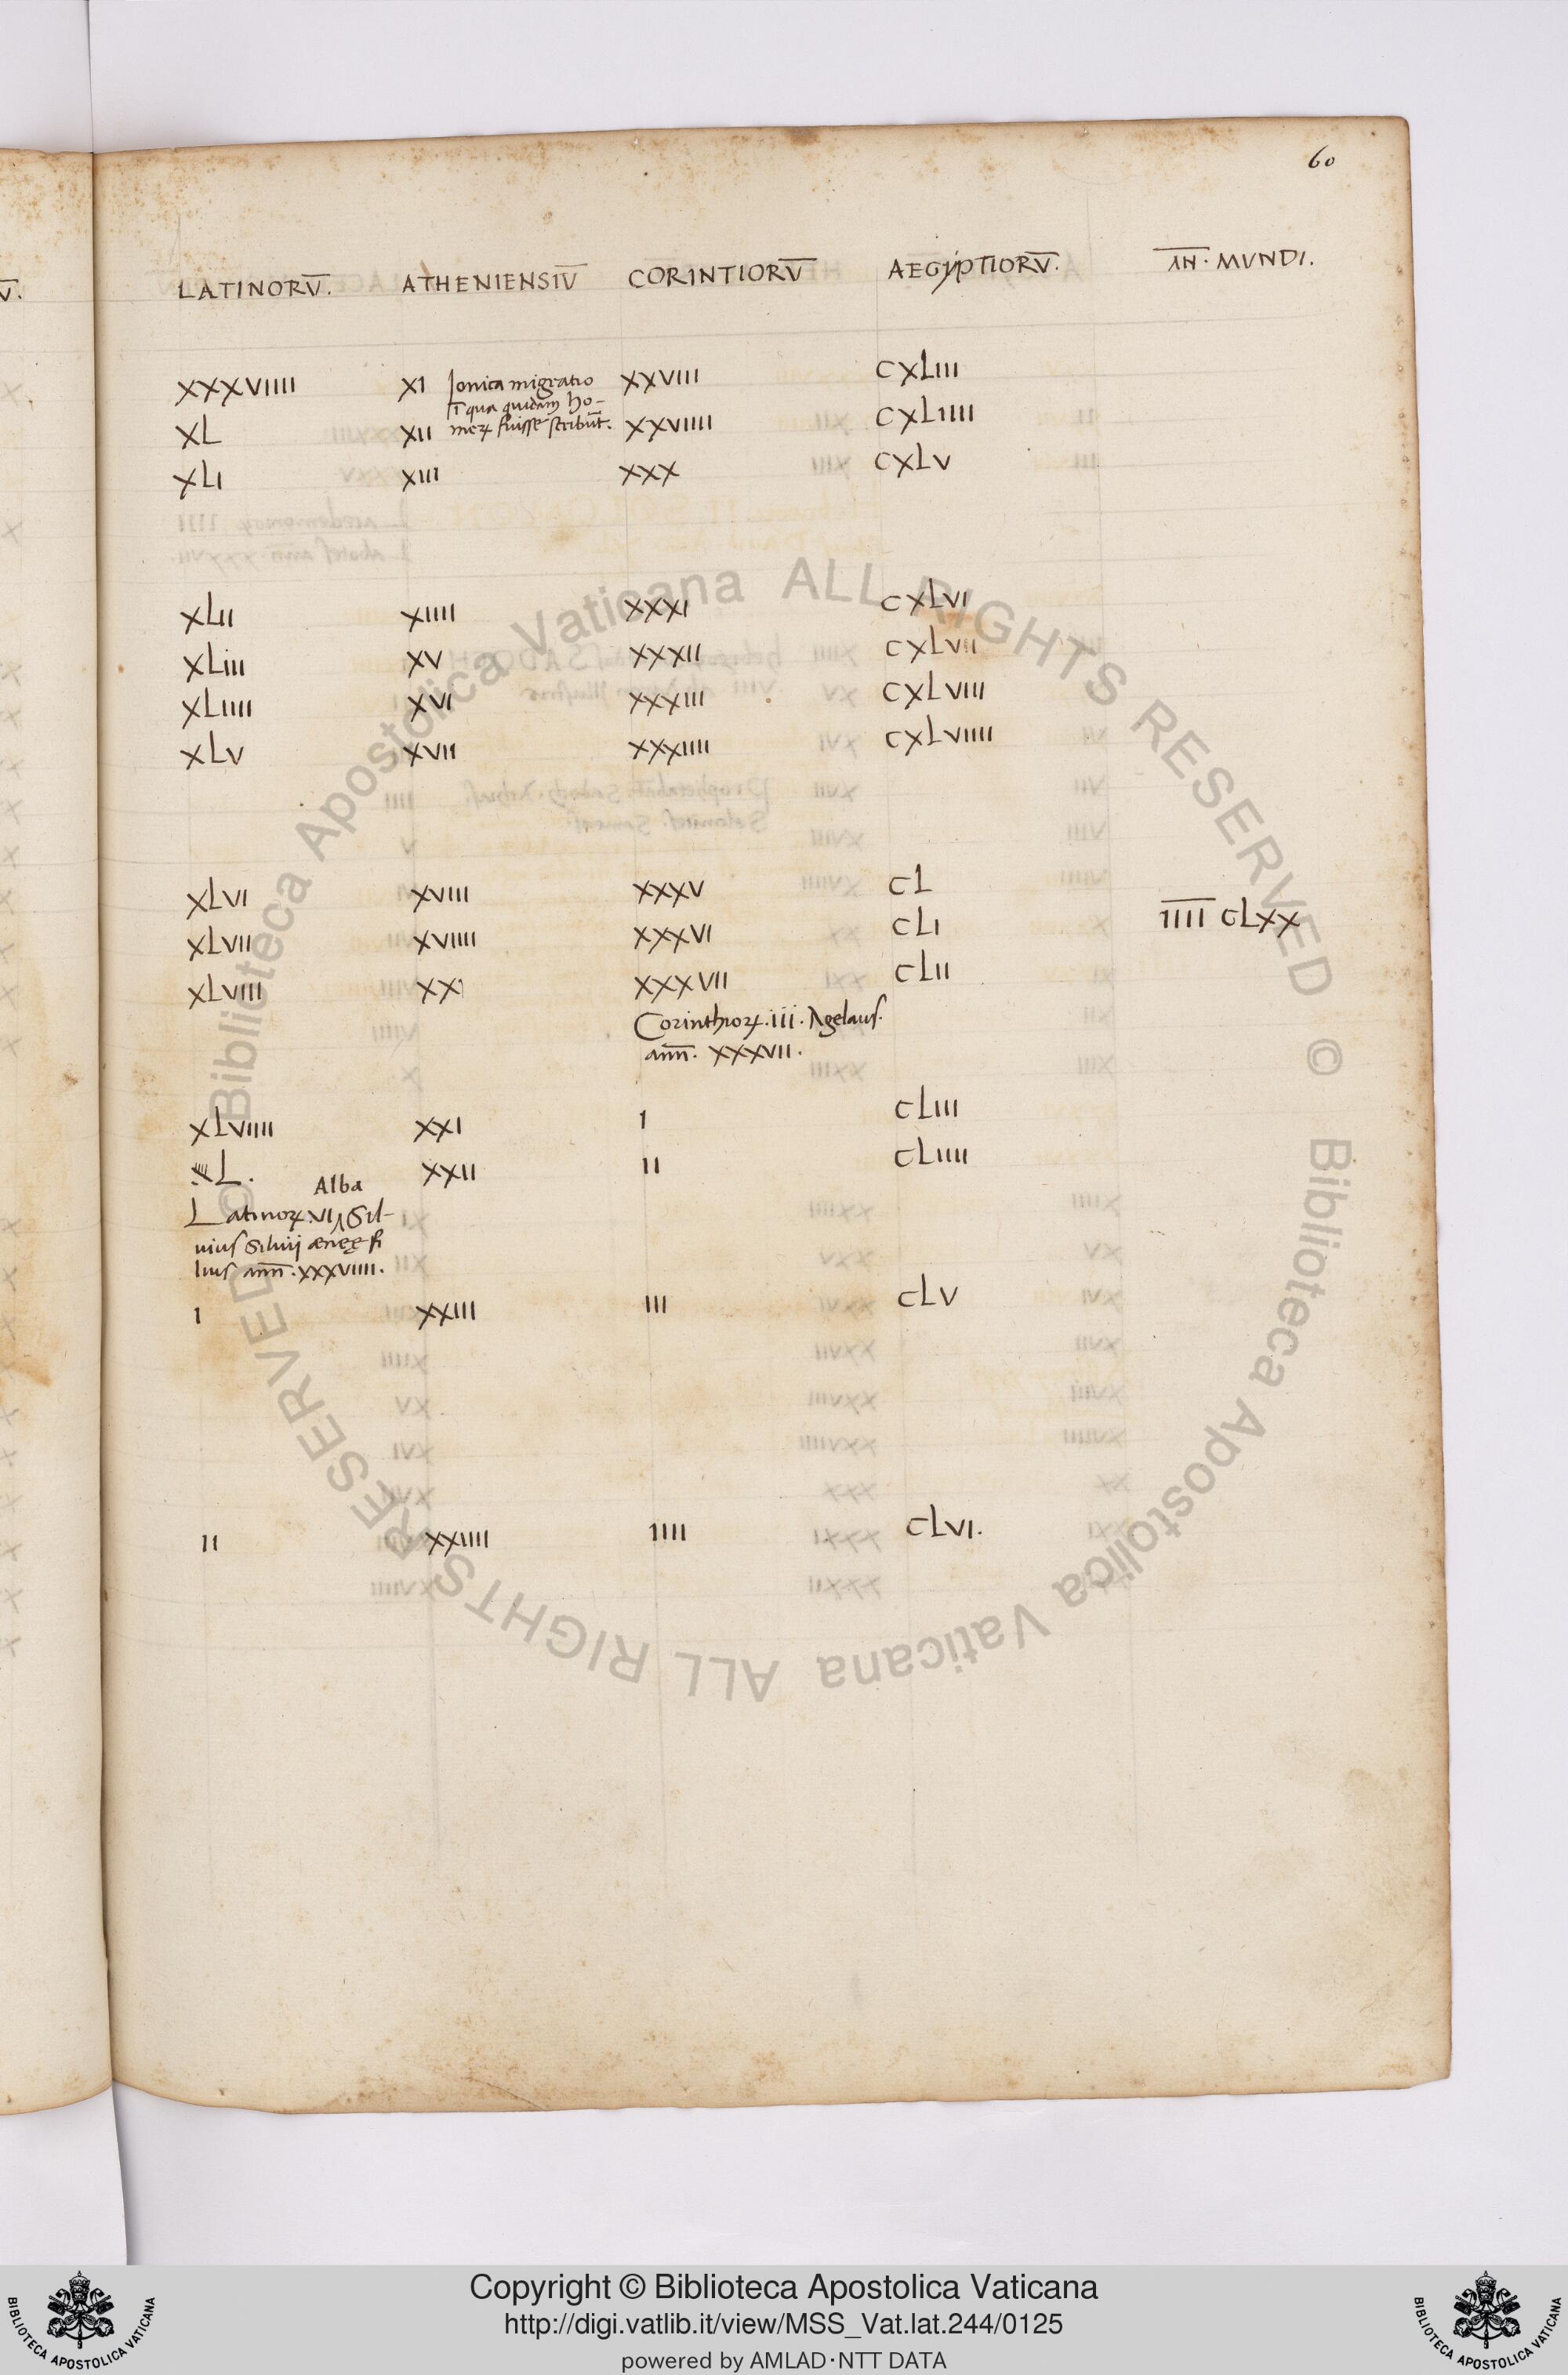 60
LATINORV̅. ATHENIENSIV̅ CORINTIORV̅ AEGYPTIORV̅. A̅N̅· MVNDI.
XXXVIIII XI Ionica migratio XXVIII CXLIII
i̅ qua quidam ho-
XL XII merꝝ fuisse scribūt. XXVIIII CXLIIII
XLI XIII XXX CXLV
XLII XIIII XXXI CXLVI
XLIII XV XXXII CXLVII
XLIIII XVI XXXIII CXLVIII
XLV XVII XXXIIII CXLVIIII
XLVI XVIII XXXV CL
XLVII XVIIII XXXVI CLI I̅I̅I̅I̅ CLXX
XLVIII XXI XXXVII CLII
Corinthioꝝ.III. Agelaus.
ann̅. XXXVII.
XLVIIII XXI I CLIII
L. XXII II CLIIII
Alba
Latinoꝝ.VI Sil-
uius Siluij æneę fi
lius ann̅.XXXVIIII.
I XXIII III CLV
II XXIIII IIII CLVI.
© Biblioteca Apostolica Vaticana ALL RIGHTS RESERVED
© Biblioteca Apostolica Vaticana ALL RIGHTS RESERVED
Copyright © Biblioteca Apostolica Vaticana
http://digi.vatlib.it/view/MSS_Vat.lat.244/0125
powered by AMLAD·NTT DATA
BIBLIOTECA APOSTOLICA VATICANA
BIBLIOTECA APOSTOLICA VATICANA